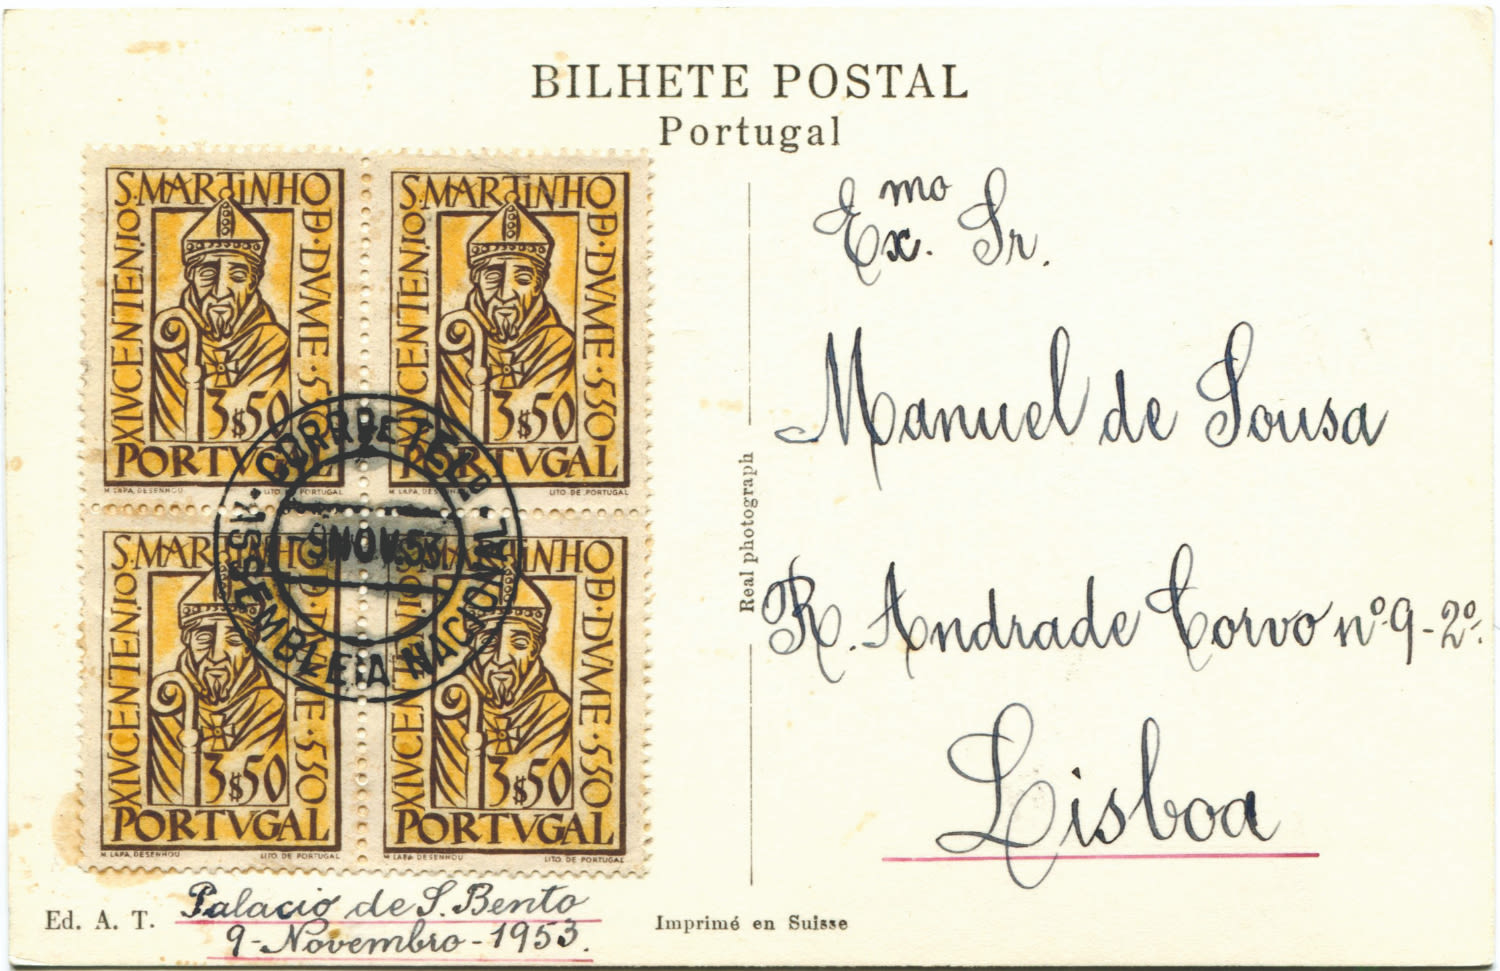 BILHETE POSTAL
Portugal
S. MARTINHO
D·DVME·550
XIV CENTENÍO
3$50
PORTVGAL
M LAPA, DESENHOU
LITO DE PORTUGAL
S. MARTINHO
D·DVME·550
XIV CENTENÍO
3$50
PORTVGAL
M LAPA, DESENHOU
LITO DE PORTUGAL
S. MARTINHO
D·DVME·550
XIV CENTENÍO
3$50
PORTVGAL
M LAPA, DESENHOU
LITO DE PORTUGAL
S. MARTINHO
D·DVME·550
XIV CENTENÍO
3$50
PORTVGAL
M LAPA, DESENHOU
LITO DE PORTUGAL
9 NOV 53
ASSEMBLEIA NACIONAL
Real photograph
Exmo. Sr.
Manuel de Sousa
R. Andrade Corvo nº 9-2º.
Lisboa
Palacio de S. Bento
9-Novembro-1953.
Ed. A. T.
Imprimé en Suisse